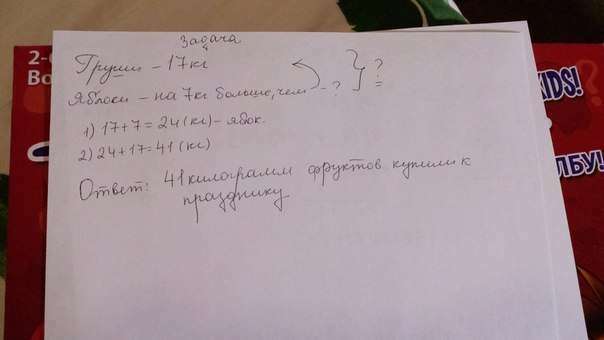 Задача
Груши – 17кг
Яблоки – на 7кг больше, чем – ? } ?
1) 17+7=24(кг)– яблок.
2) 24+17=41(кг)
Ответ: 41 килограмм фруктов купили к
празднику
2-
Во
KIDS!
ЛБУ!